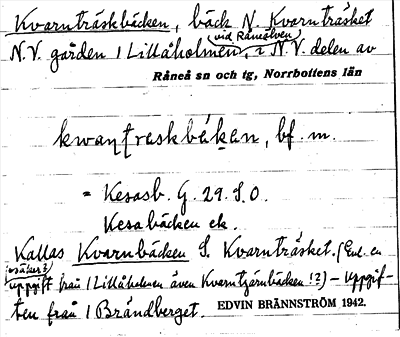 Kvarnträskbäcken, bäck N. Kvarnträsket
N.V. gården 1 Lillåholmen, (vid Råneälven) i N.V. delen av
Råneå sn och tg, Norrbottens län
bf. m.
= Kesasb. G. 29. S.O.
Kesabäcken ek.
Kallas Kvarnbäcken S. Kvarnträsket. (Enl. en
(osäker?) uppgift från 1 Lillåholmen även Kvarntjärnbäcken (?) – Uppgif-
ten från 1 Brändberget. EDVIN BRÄNNSTRÖM 1942.